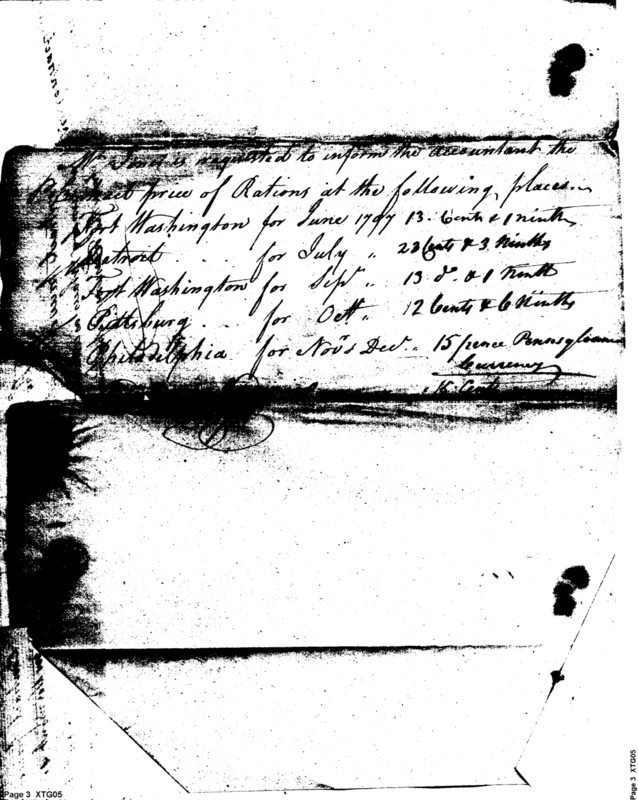 Mr is requested to inform the accountant the
Contract price of Rations at the following places.
Fort Washington for June 1797 13. Cents & 1 ninth
Detroit . . . for July " 23 Cents & 3 Ninths
Fort Washington for Sepr. " 13 do. & 1 Ninth
Pittsburg . . for Octr. " 12 Cents & 6 Ninths
Philadelphia for Novr & Decr. " 15/pence Pennsylvania
Currency
Cents
Page 3 XTG05
Page 3 XTG05